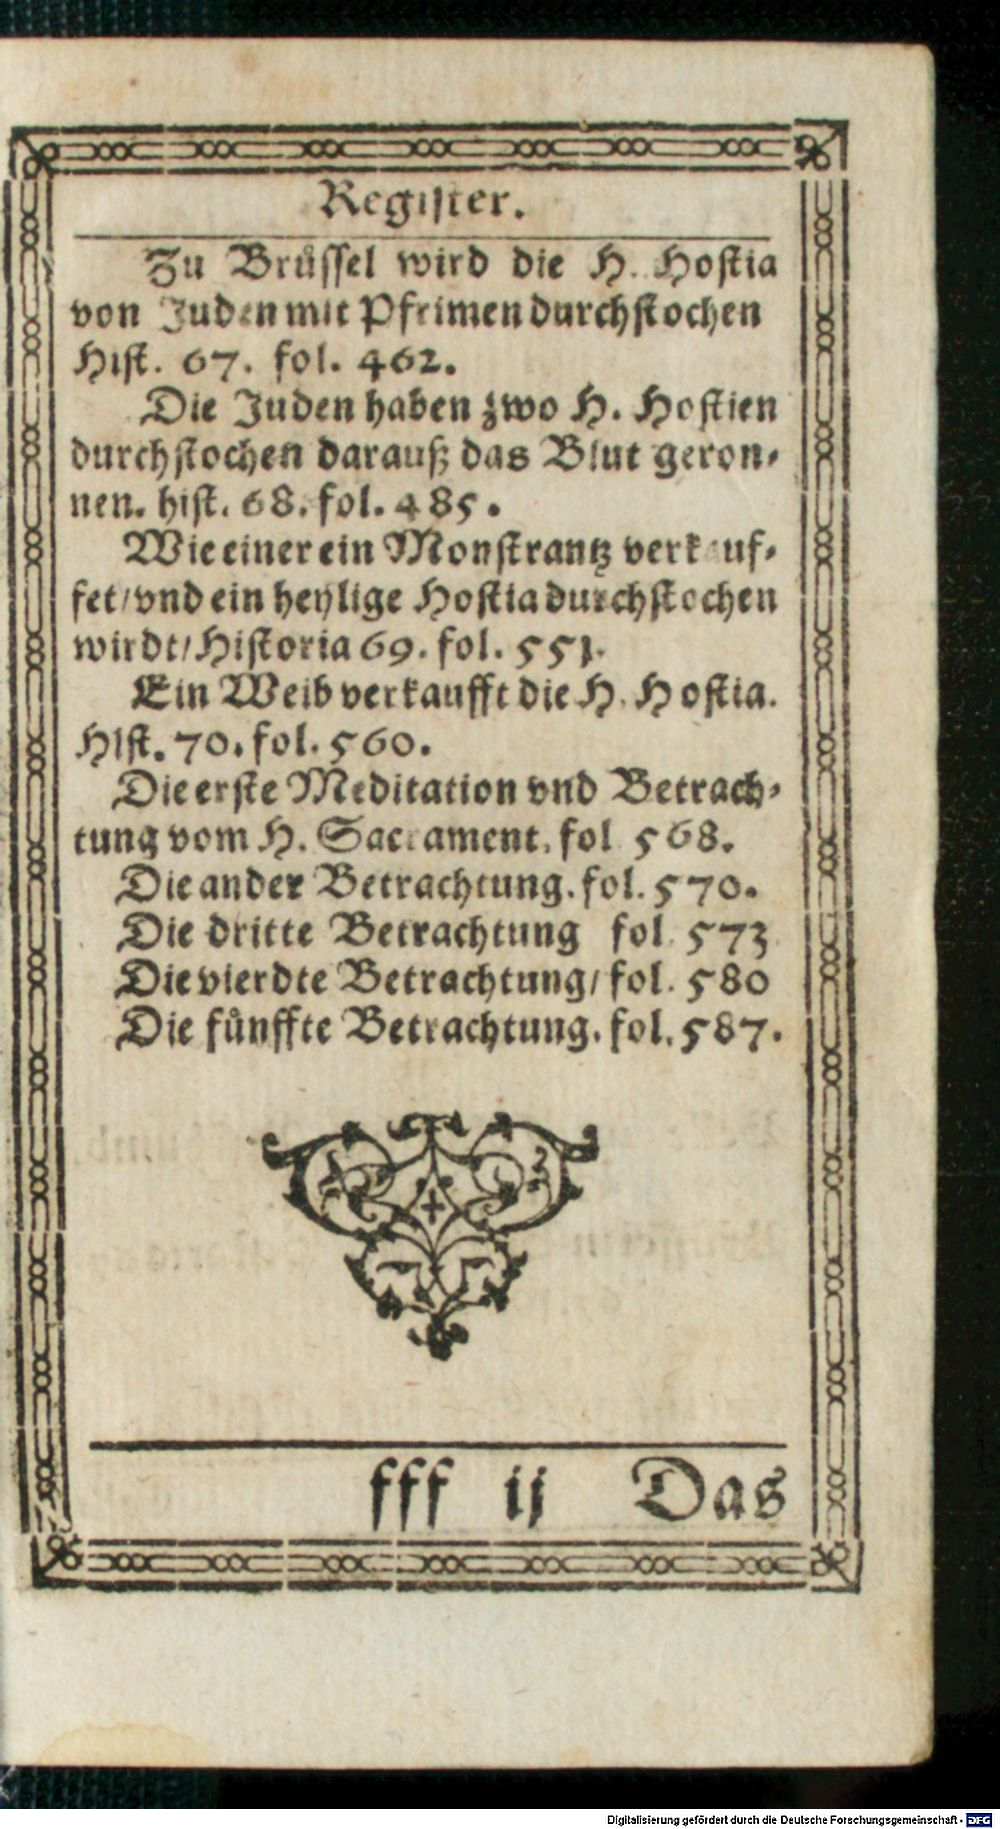 Register.
Zu Brůſſel wird die H. Hoſtia
von Juden mit Pfrimen durchſtochen
Hiſt. 67. fol. 462.
Die Juden haben zwo H. Hoſtien
durchſtochen darauß das Blut geron-
nen. hiſt. 68. fol. 485.
Wie einer ein Monſtrantz verkauf-
fet/ vnd ein heylige Hoſtia durchſtochen
wirdt/ Hiſtoria 69. fol. 551.
Ein Weib verkaufft die H. Hoſtia.
Hiſt. 70. fol. 560.
Die erſte Meditation vnd Betrach-
tung vom H. Sacrament. fol 568.
Die ander Betrachtung. fol. 570.
Die dritte Betrachtung fol. 573
Die vierdte Betrachtung/ fol. 580
Die fůnffte Betrachtung. fol. 587.
fff ij Das
Digitalisierung gefördert durch die Deutsche Forschungsgemeinschaft - DFG